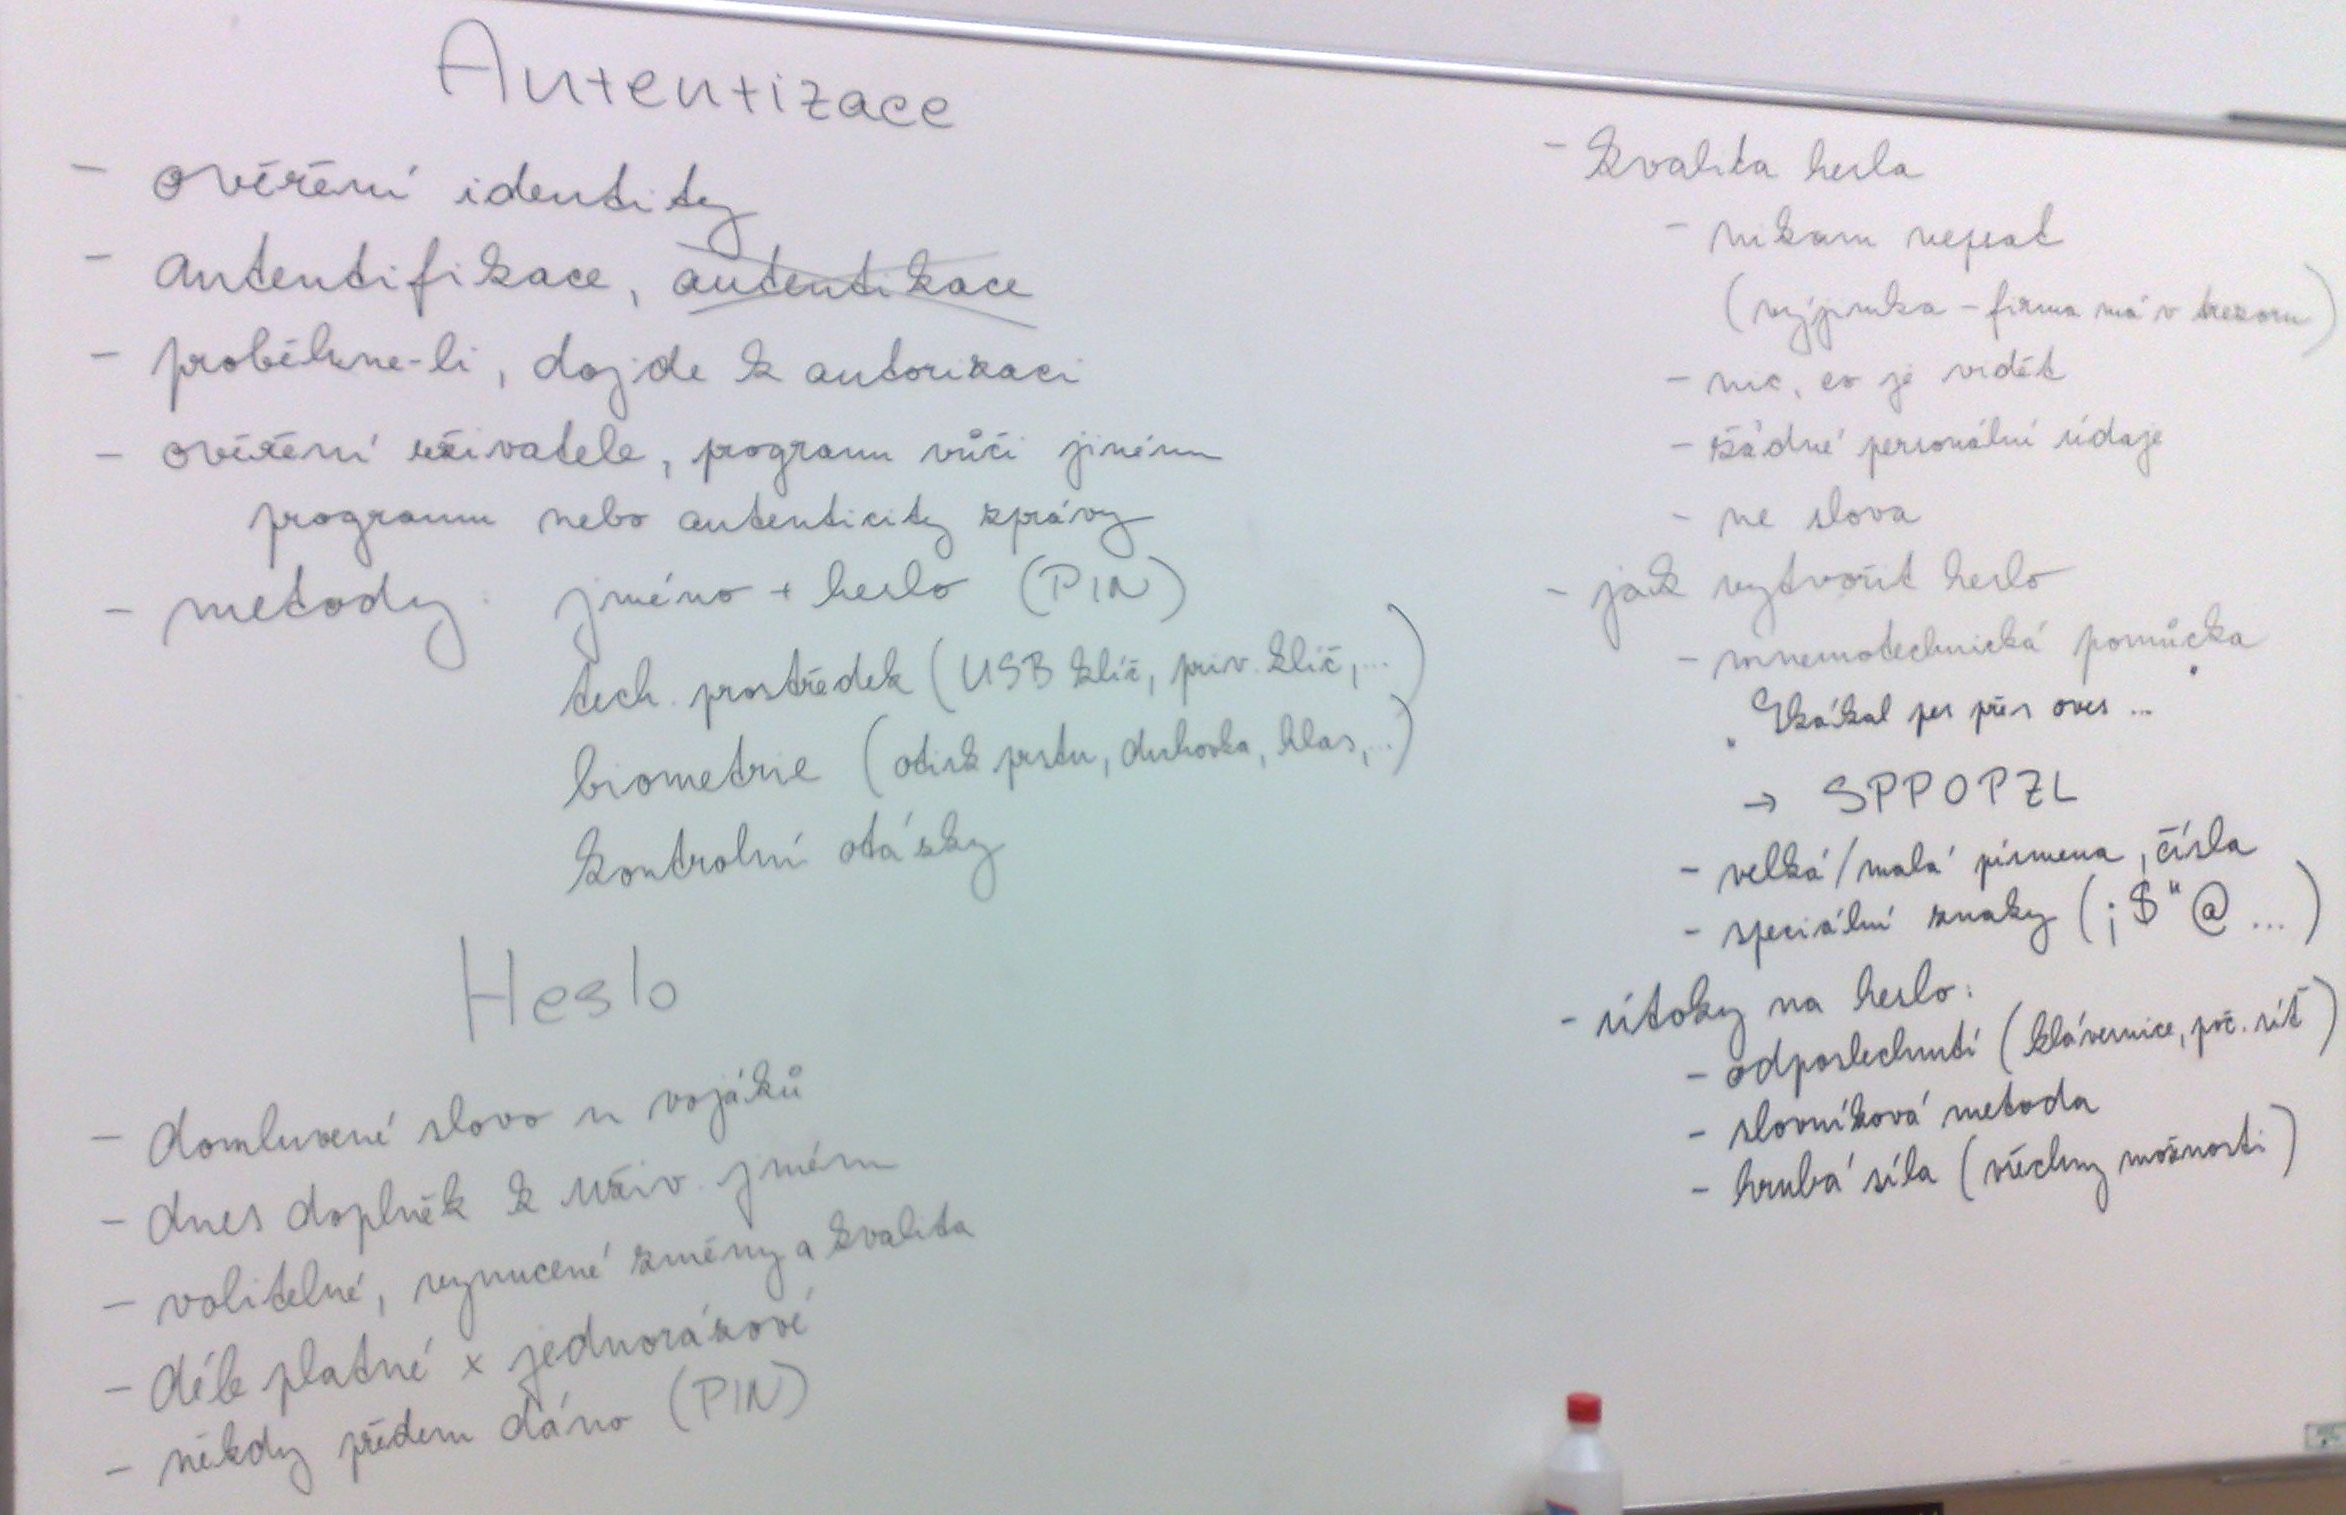 Autentizace
- ověření identity
- autentifikace, autentikace
- proběhne-li, dojde k autorizaci
- ověření uživatele, programu vůči jinému
programu nebo autenticity zprávy
- metody: jméno + heslo (PIN)
tech. prostředek (USB klíč, priv. klíč,...)
biometrie (otisk prstu, duhovka, hlas,...)
kontrolní otázky
Heslo
- domluvené slovo u vojáků
- dnes doplněk k uživ. jménu
- volitelné, vynucené změny a kvalita
- déle platné x jednorázové
- někdy předem dáno (PIN)
- kvalita hesla
- nikam nepsat
(výjimka - firma má v trezoru)
- nic, co je vidět
- žádné personální údaje
- ne slova
- jak vytvořit heslo
- mnemotechnická pomůcka
"Skákal pes přes oves ...
→ SPPOPZL
- velká/malá písmena, čísla
- speciální znaky (;$"@ ...)
- útoky na heslo:
- odposlechnutí (klávesnice, poč. síť)
- slovníková metoda
- hrubá síla (všechny možnosti)